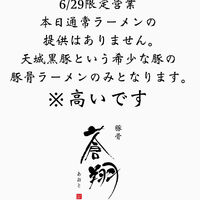 6/29限定営業
本日通常ラーメンの
提供はありません。
天城黒豚という希少な豚の
豚骨ラーメンのみとなります。
※高いです
豚骨
蒼翔
あおと